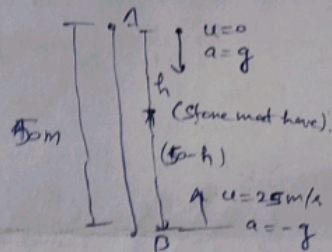 A
u=0
a=g
h
(Stone meet here).
50m
(50-h)
u=25m/s
a=-g
B